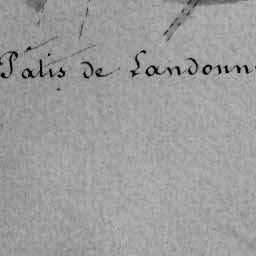 Patis de Landonn